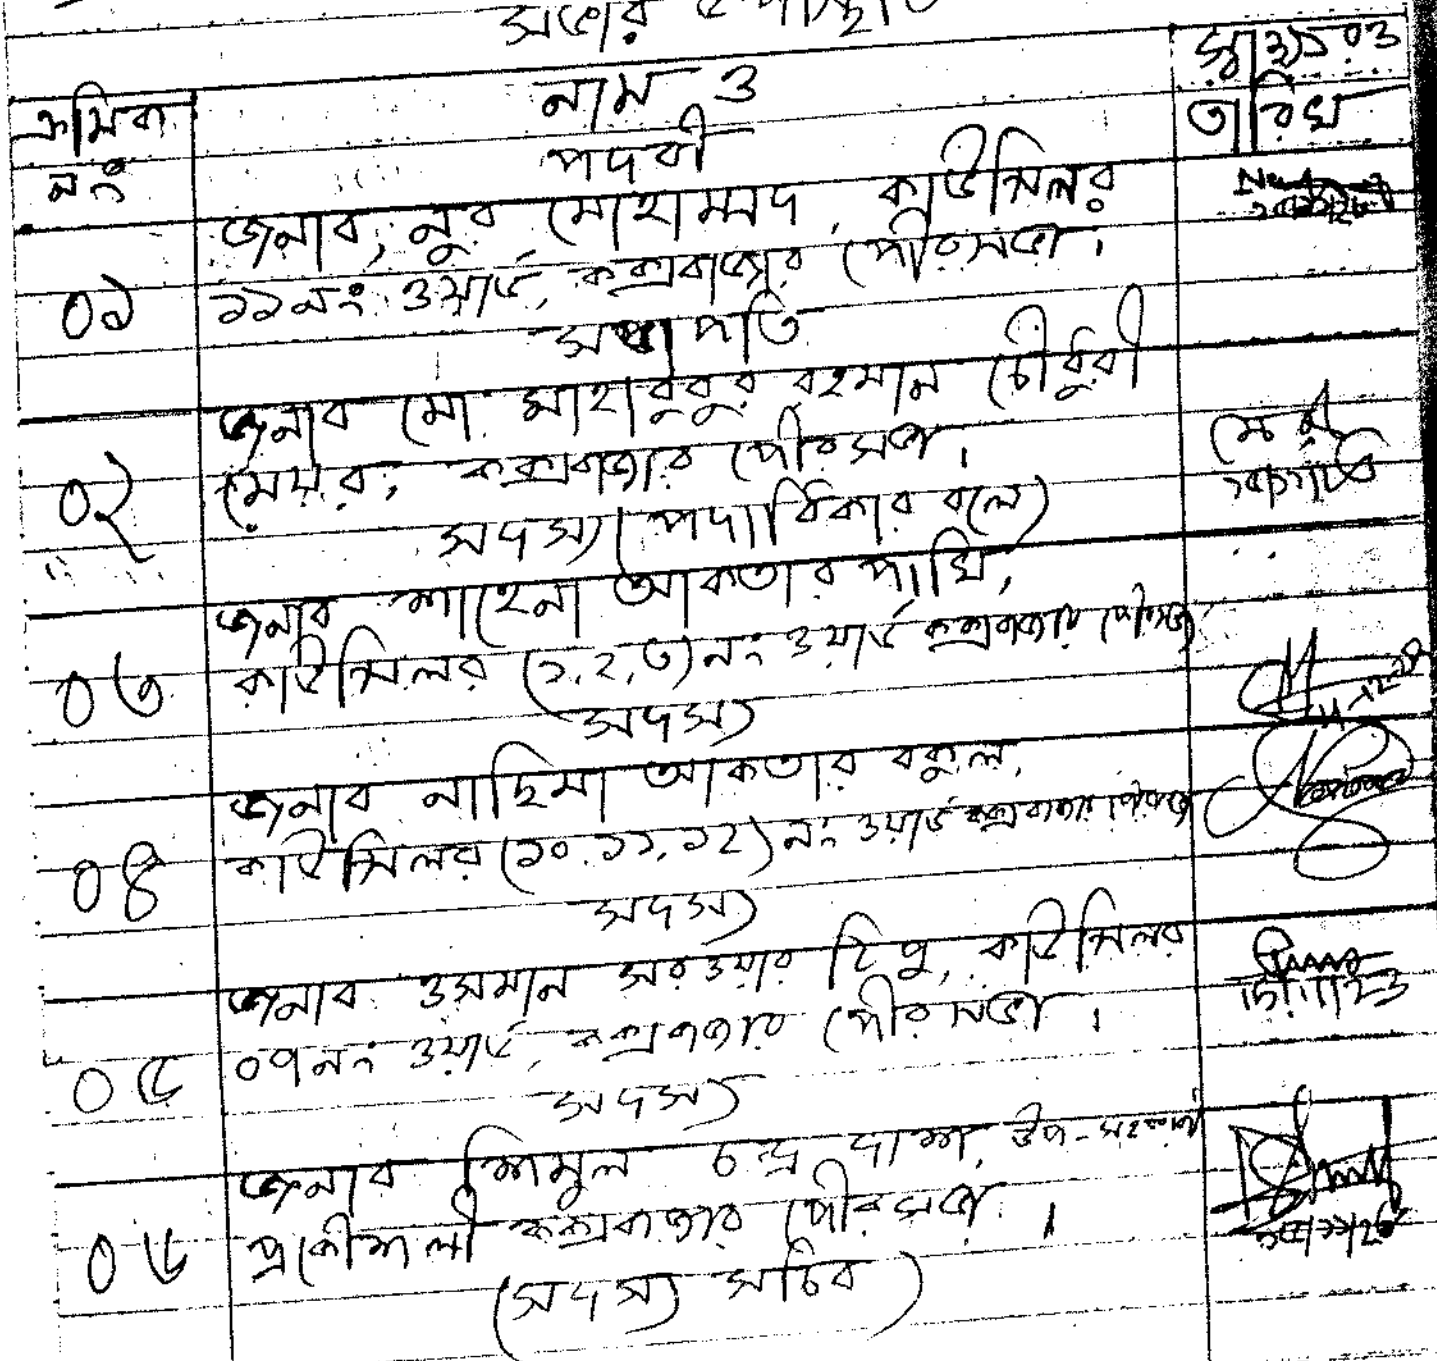 সভার উপস্থিতি
ক্রমিক নং
নাম ও
পদবী
স্বাক্ষর ও
তারিখ
জনাব, নুর মোহাম্মদ, কাউন্সিলর
০১
১১নং ওয়ার্ড, কক্সবাজার পৌরসভা।
সভাপতি
জনাব মো: মাহাবুবুর রহমান চৌধুরী
০২
মেয়র, কক্সবাজার পৌরসভা।
সদস্য (পদাধিকার বলে)
জনাব শাহেনা আকতার পাখি,
০৩
কাউন্সিলর (১,২,৩) নং ওয়ার্ড কক্সবাজার পৌরসভা
সদস্য
জনাব নাছিমা আকতার বকুল,
০৪
কাউন্সিলর (১০,১১,১২) নং ওয়ার্ড কক্সবাজার পৌরসভা
সদস্য
জনাব ওসমান সরওয়ার টিপু, কাউন্সিলর
০৫
০৭নং ওয়ার্ড, কক্সবাজার পৌরসভা।
সদস্য
জনাব শিমুল চন্দ্র দাশ, উপ-সহকারী
০৬
প্রকৌশলী কক্সবাজার পৌরসভা।
(সদস্য সচিব)